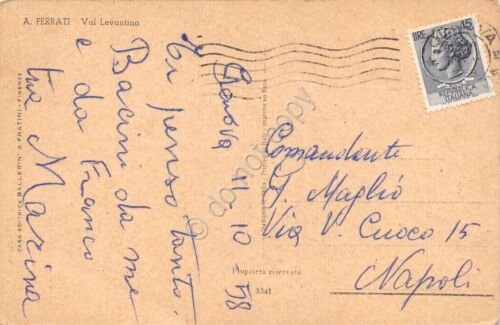 A. FERRATI Val Levantina
Genova 21 10 58
Ti penso tanto.
Bacini da me
e da Franco
tua Marina
CASA EDITRICE BALLERINI & FRATINI - FIRENZE
Proprietà riservata
3341
LIRE 15
REPUBBLICA
ITALIANA
Comandante
G. Maglió
Via V. Cuoco 15
Napoli
do not copy